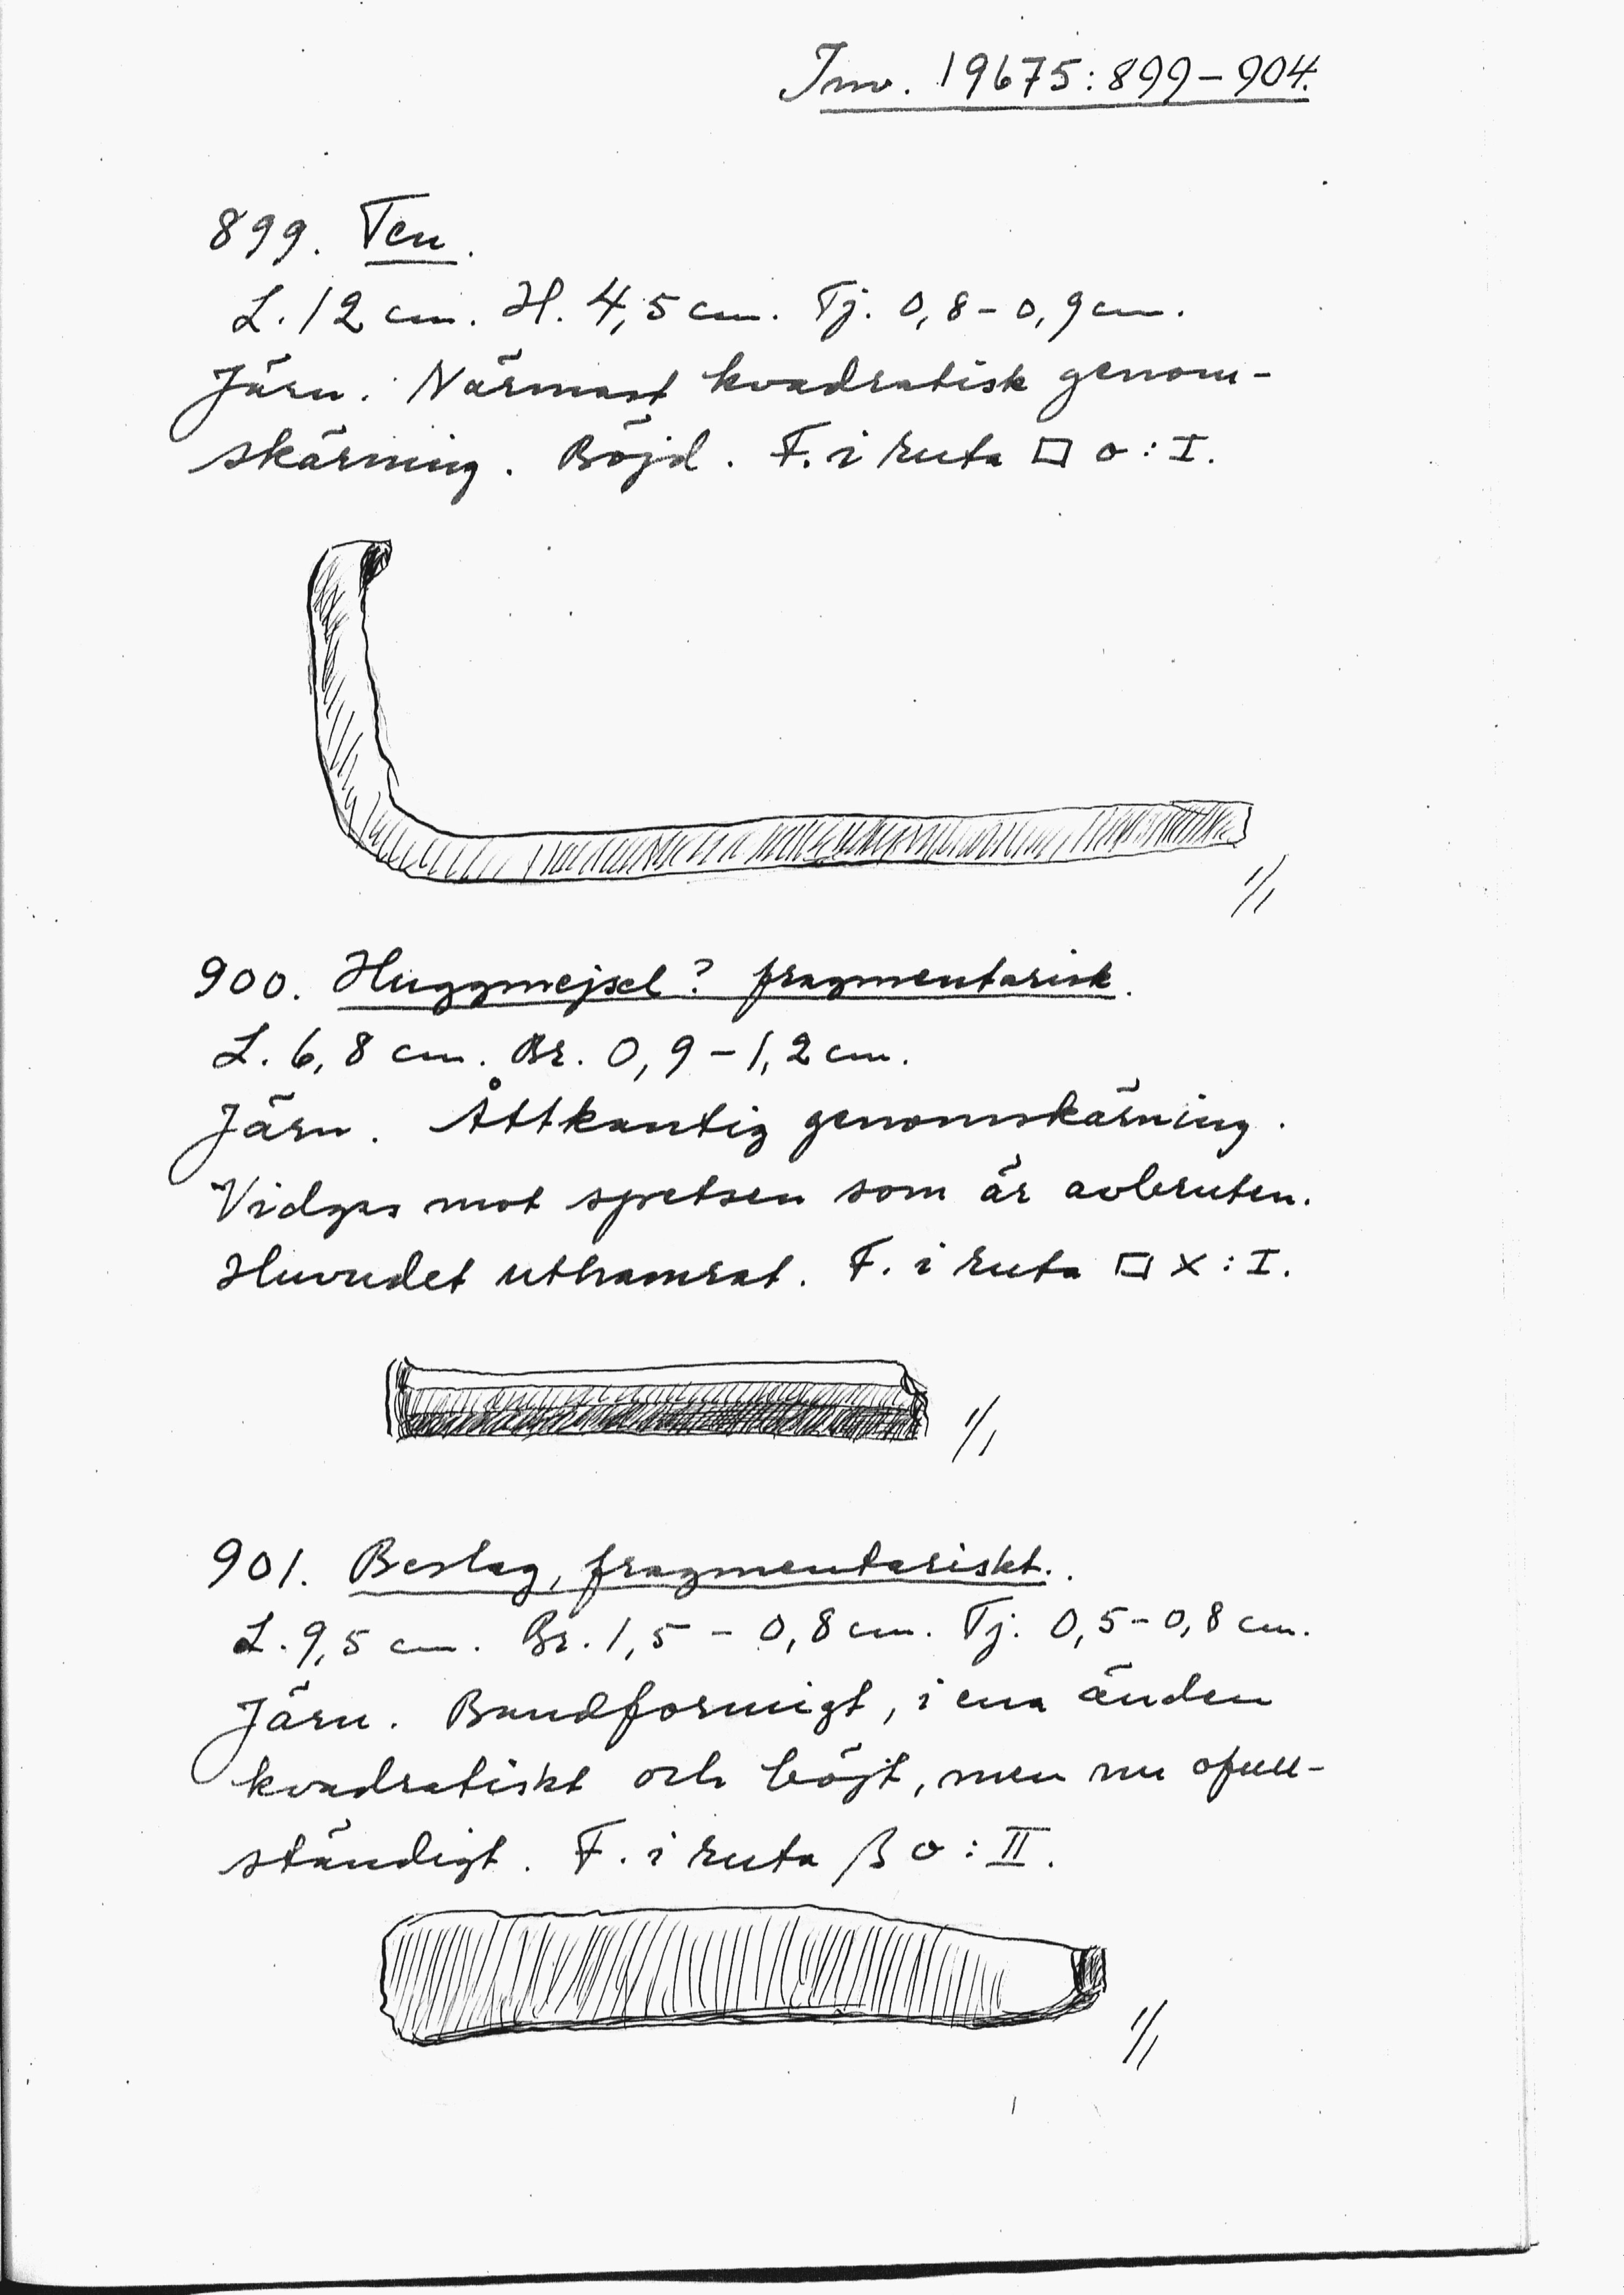 Inv. 19675:899-904.
899. Ten.
L. 12 cm. H. 4,5 cm. Tj. 0,8-0,9 cm.
Järn. Närmast kvadratisk genom-
skärning. Böjd. F. i ruta □ o : I.
1/1
900. Huggmejsel? fragmentarisk.
L. 6,8 cm. Br. 0,9-1,2 cm.
Järn. Åttkantig genomskärning.
Vidgas mot spetsen som är avbruten.
Huvudet uthamrat. F. i ruta □ X : I.
1/1
901. Beslag, fragmentariskt.
L. 9,5 cm. Br. 1,5 - 0,8 cm. Tj. 0,5-0,8 cm.
Järn. Bandformigt, i ena änden
kvadratiskt och böjt, men nu ofull-
ständigt. F. i ruta β o : II.
1/1